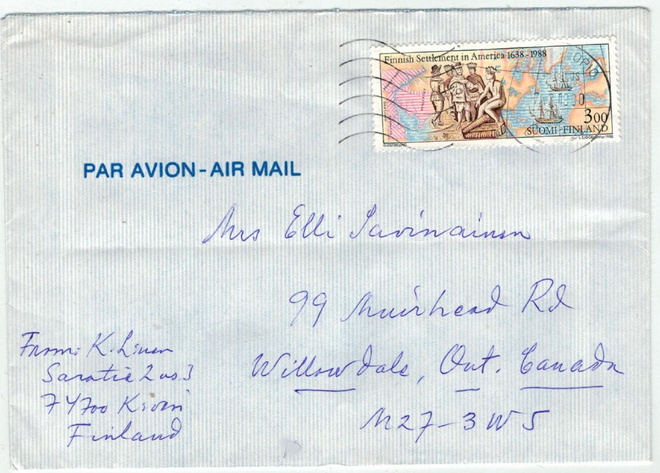 Finnish Settlement in America 1638-1988
3.00
SUOMI-FINLAND
PAR AVION - AIR MAIL
Mrs Elli Savinainen
99 Muirhead Rd
Willowdale, Ont. Canada
M27-3W5
From: K.
2 as 3
74700
Finland